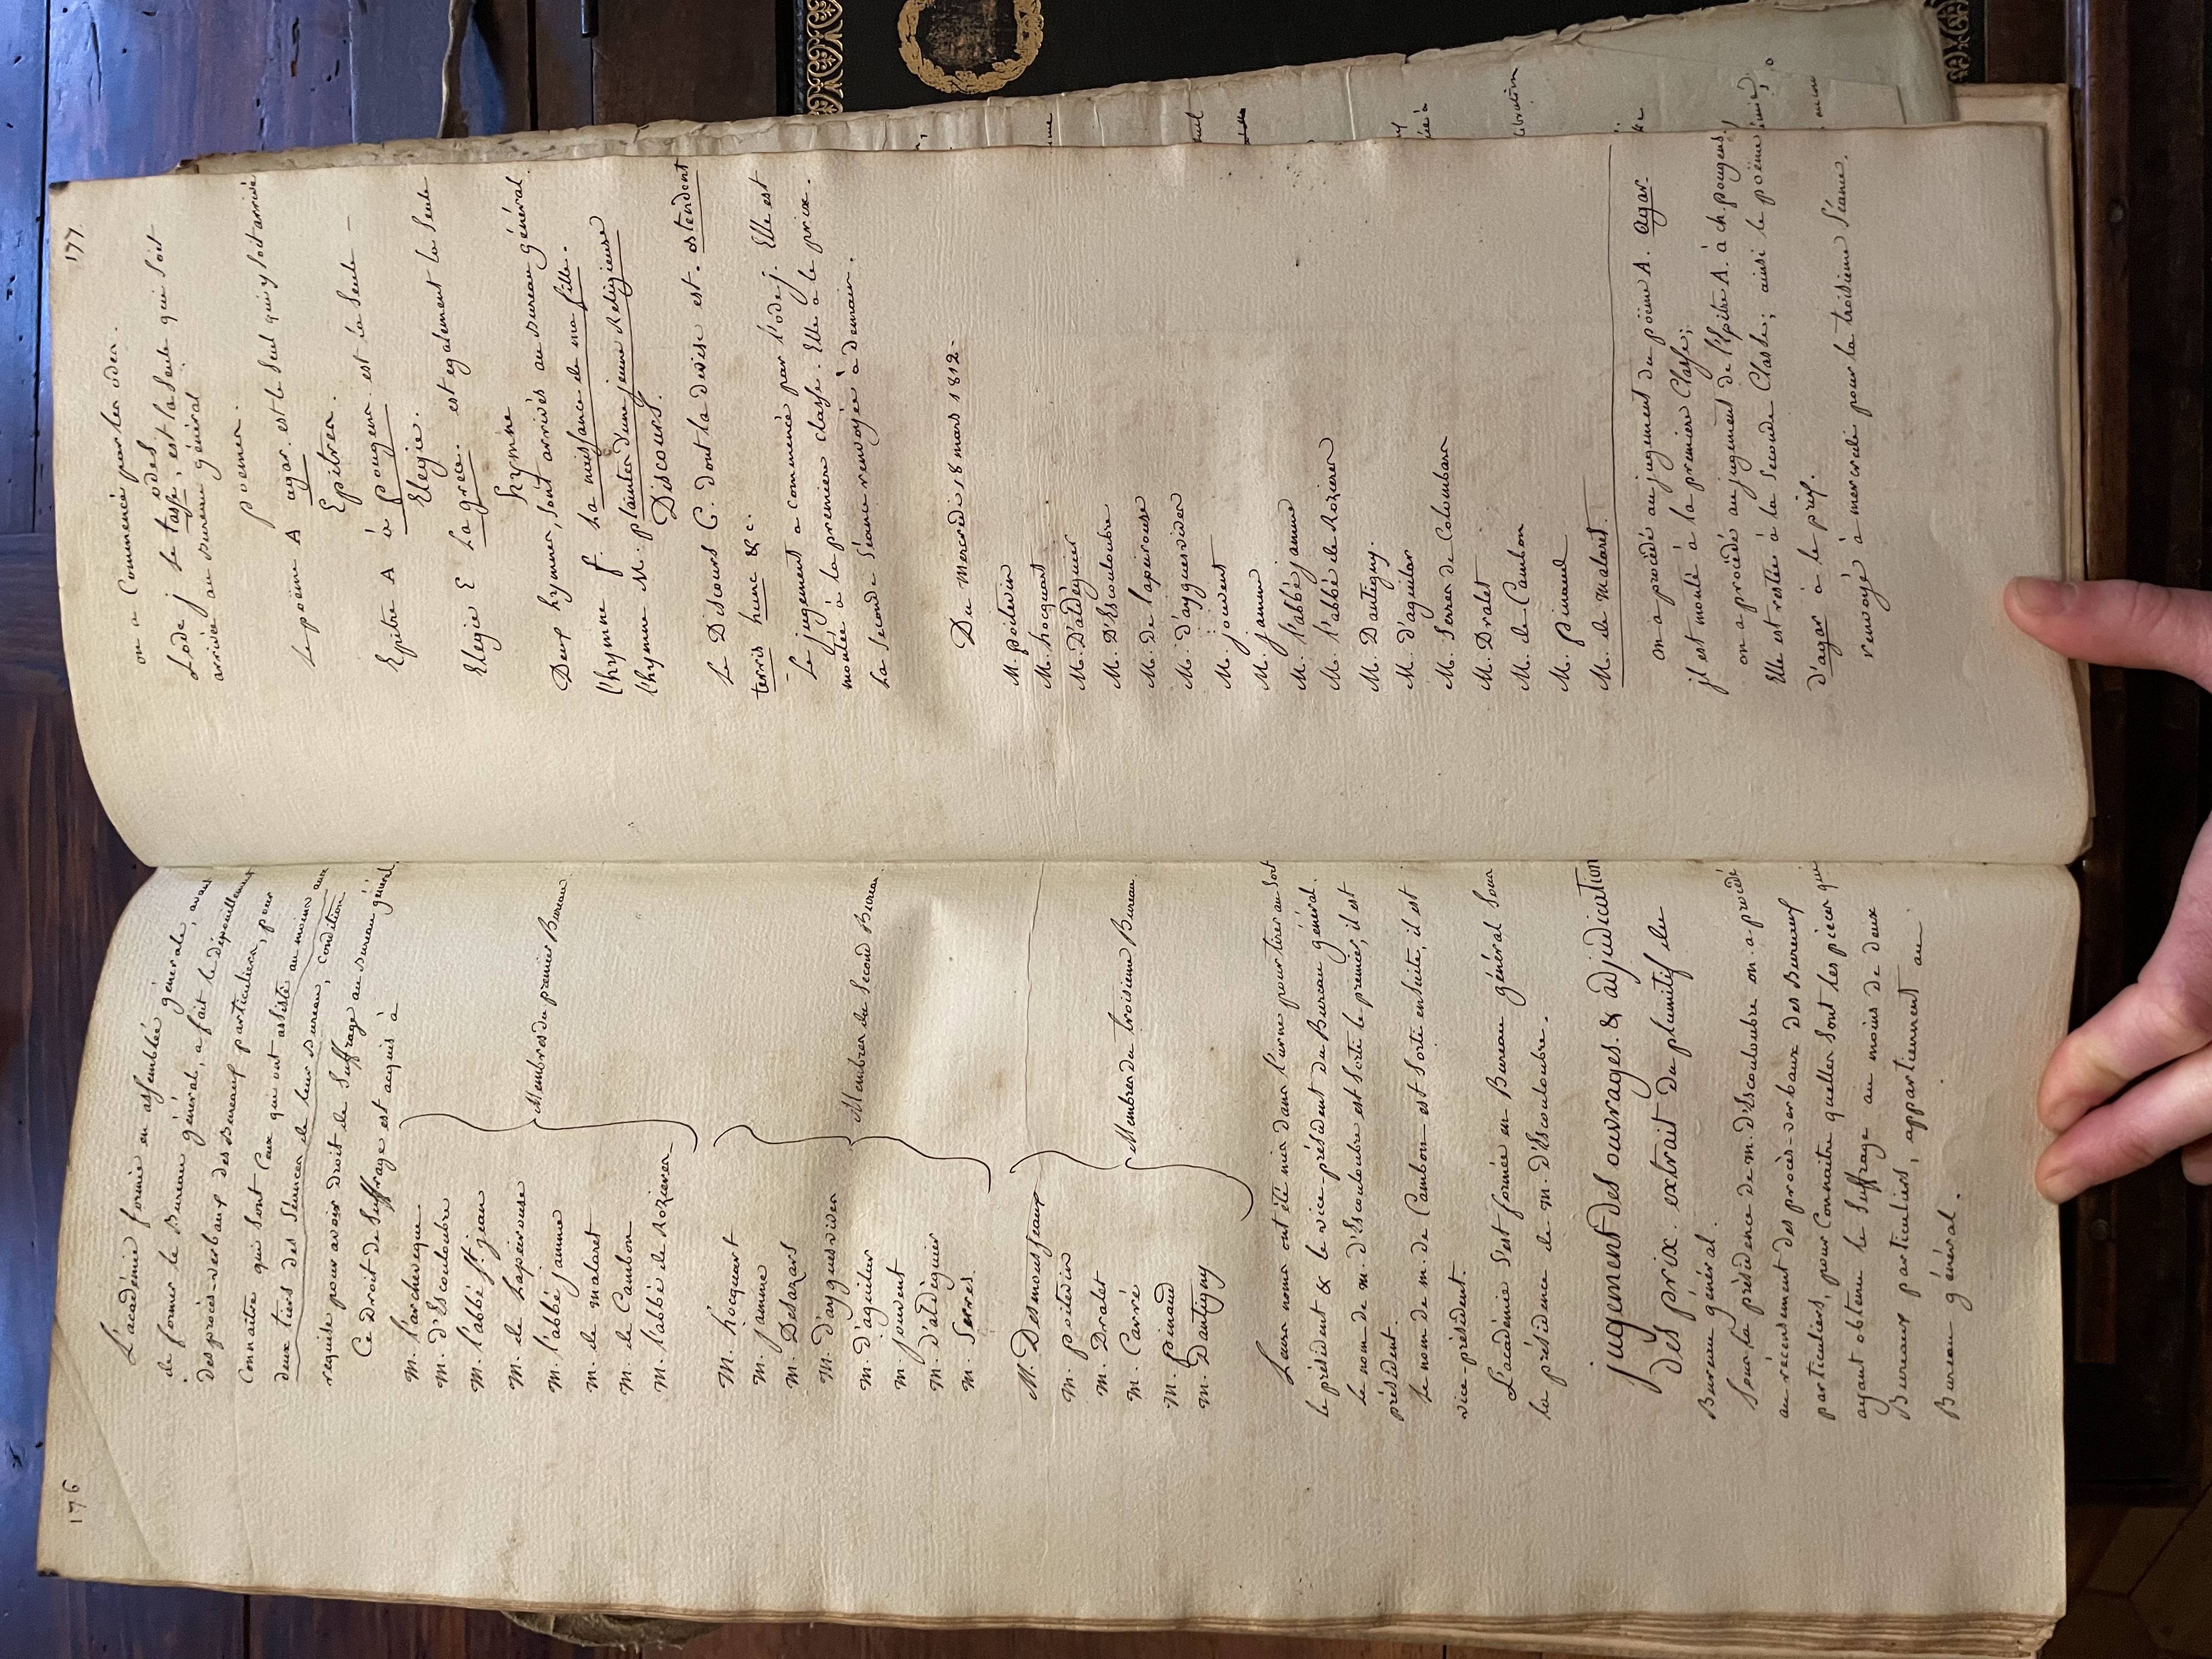 176
L'académie formée en assemblée générale, avant
de former le Bureau général, a fait le dépouillement
des procès-verbaux des Bureaux particuliers, pour
Connaitre qui sont Ceux qui ont assisté au moins aux
deux tiers des Séances de leur Bureau, condition
requise pour avoir droit de Suffrage au Bureau général.
Ce Droit de Suffrage est acquis à
M. l'archevêque.
M. d'Escouloubre
M. l'abbé St. jean
M. de Lapeirouse
M. l'abbé jamme
M. de malaret
M. de Cambon
M. l'abbé de Rozieres
Membres du premier Bureau.
M. hocquart
M. jamme
M. Desazars
M. d'ayguesvives
M. d'aguilar
M. jouvent
M. d'aldéguier
M. Serres.
Membres du Second Bureau.
M. Desmousseaux
M. poitevin
M. Dralet
M. Carré
M. pinaud
M. Dantigny
Membres du troisieme Bureau.
Leurs noms ont été mis dans l'urne pour tirer au Sort
le président & le vice-président du Bureau général.
le nom de m. d'Escouloubre est Sorti le premier, il est
président.
Le nom de m. de Cambon est Sorti ensuite, il est
vice-président.
L'académie S'est formée en Bureau général Sous
la présidence de M. d'Escouloubre.
jugement des ouvrages. & adjudication
des prix. extrait du plumitif du
Bureau général.
Sous la présidence de m. d'Escouloubre on a procédé
au recensement des procès-verbaux des Bureaux
particuliers, pour Connaitre quelles Sont les pieces qui
ayant obtenu le Suffrage au moins de deux
Bureaux particuliers, appartiennent au
Bureau général.
177
on a Commencé par les odes.
odes
L'ode j Le tasse, est la Seule qui Soit
arrivée au Bureau général
poemes.
Le poëme A agar. est le Seul qui y Soit arrivé
Epitres.
Epitre A à pougens. est la Seule —
Elegie.
Elegie E La grece. est egalement la Seule
hymne
Deux hymnes, Sont arrivés au Bureau général
l'hymne f. La naissance de ma fille.
l'hymne M. plaintes d'une jeune Religieuse
Discours.
Le Discours C. dont la devise est. ostendent
terris hunc &c.
Le jugement a commencé par l'ode j. Elle est
montée à la premiere classe. Elle a le prix.
La Seconde Séance renvoyée à demain.
Du Mercredi 18 mars 1812.
M. poitevin
M. hocquart
M. D'aldéguier
M. D'Escouloubre
M. de lapeirouse
M. d'ayguesvives
M. jouvent
M. jamme
M. l'abbé jamme
M. l'abbé de Rozieres
M. Dantigny.
M. d'aguilar
M. Serres de Colombars
M. Dralet
M. de Cambon
M. pinaud
M. de Malaret.
on a procédé au jugement du poëme A. agar.
jl est monté à la premiere Classe;
on a procédé au jugement de l'Epitre A. à ch. pougens,
Elle est restée à la Seconde Classe; ainsi le poëme
d'agar a le prix.
renvoyé à mercredi pour la troisieme Séance.